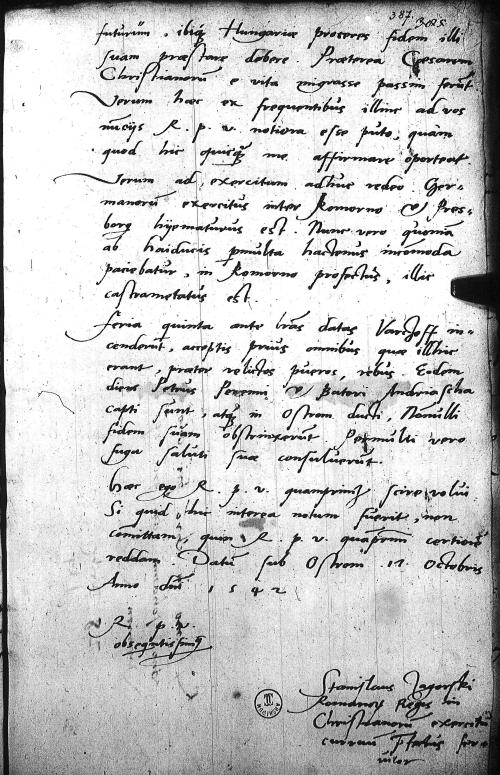 387. 385
futurum, ibiq Hungariæ proceres fidem illi
suam præstare debere. Præterea Cæsarem
Christianorum e vita migrasse passim ferūt.
Verum hæc ex frequentibus illinc ad vos
nuncijs R. p. v. notiora esse puto, quam
quod hic quicq me affirmare oporteat
Verum ad exercitum adhuc redeo. Ger=
manorū exercitus inter Komorno & Pres=
borg hyematurus est. Nunc vero quoniā
ab haiducis pmulta hactenus incomoda
paciebatur, in Komorno profectus, illic
castrametatus est.
Feria quinta ante lras datas in=
cenderūt, acceptis prius omnibus quæ illhic
erant, præter relictos pueros, rebus. Eodem
die Petrus Peremi & Batori Andriascha
capti sunt, atq in Ostrom ducti, Nonulli
fidem suam obstrinxerūt Permulti vero
fuga saluti suæ consuluerūt.
hæc ego R. p. v. quamprimū scire volui
Si quid huc interea notum fuerit, non
comittam, quin R. p. v. quāprim certiorē
reddam. Datū sub Ostrom 17. Octobris
Anno dnī 1542
R. p. v.
obsequētissimq
Stanislaus Zagorski
Romanorū Regis in
Christianorū exercitu
currum ser=
vitor